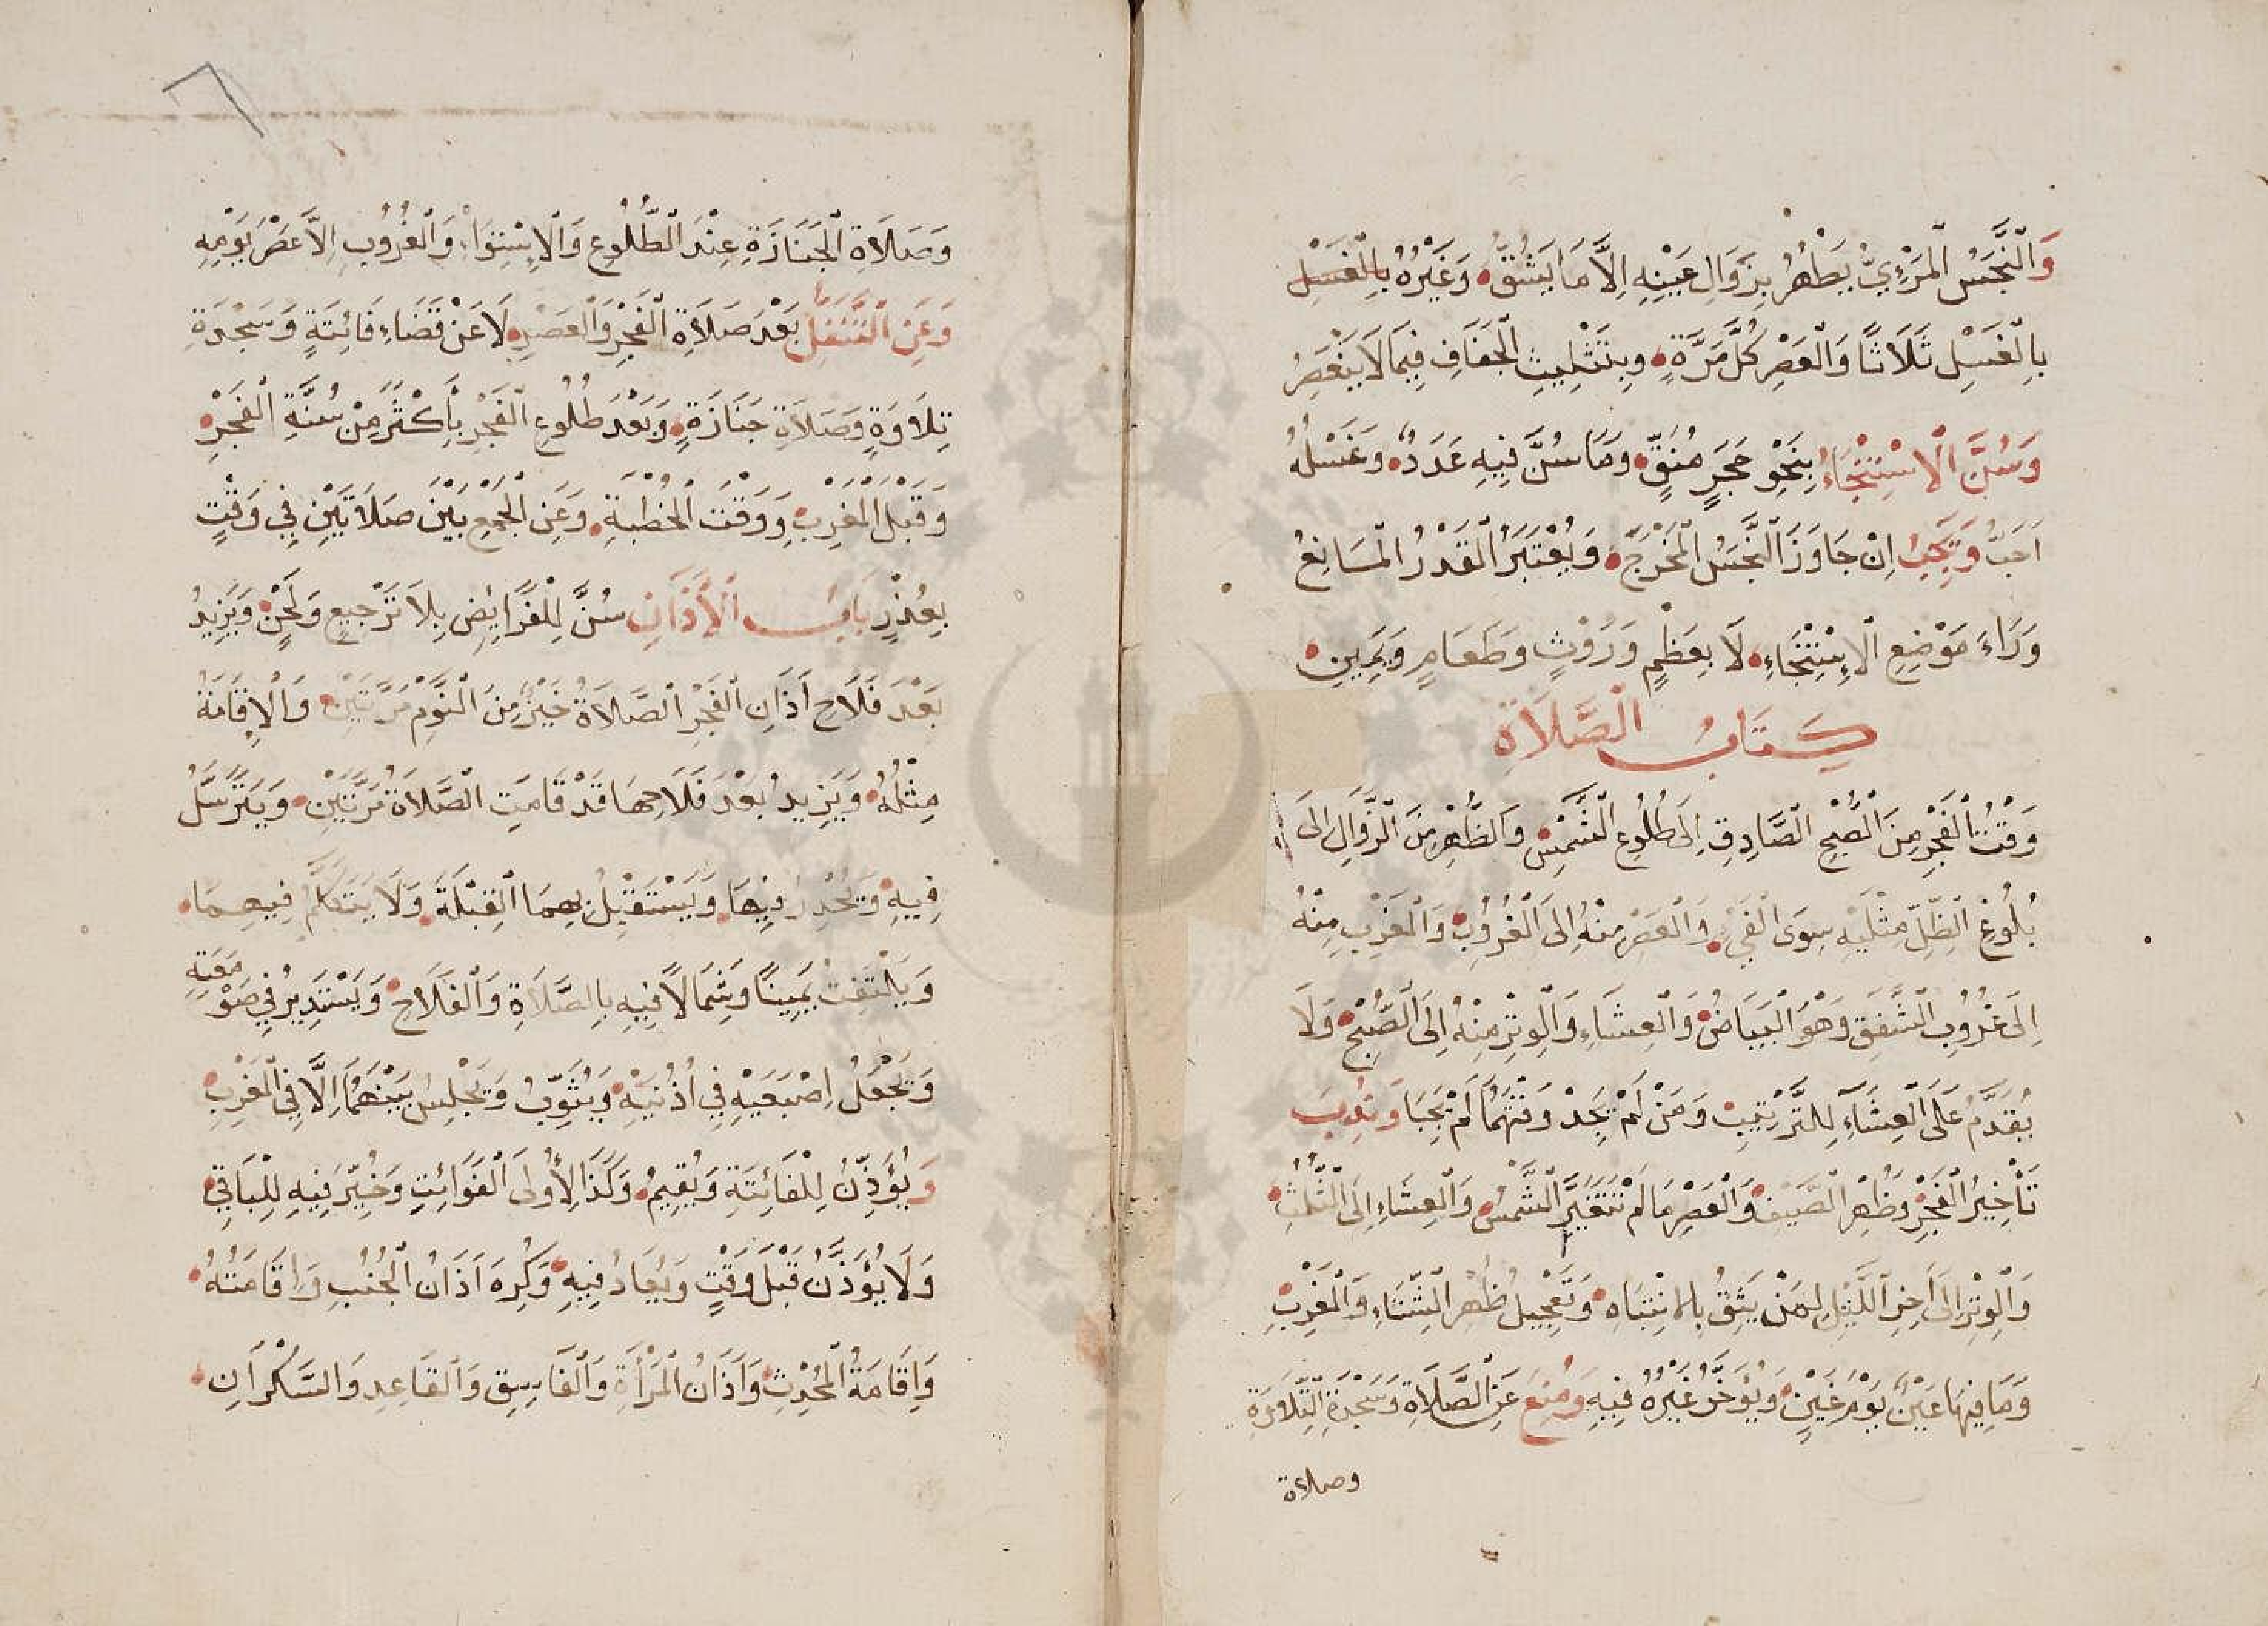 وَالنَّجَسُ الْمَرْئِيُّ يَطْهُرُ بِزَوَالِ عَيْنِهِ اِلَّا مَا يَشُقُّ وَغَيْرُهُ بِالْغَسْلِ
بِالْغَسْلِ ثَلَاثًا وَالْعَصْرِ كُلَّ مَرَّةٍ وَبِتَثْلِيثِ الْجَفَافِ فِيمَا لَا يَنْعَصِرُ
وَسُنَّ الْاِسْتِنْجَاءُ بِنَحْوِ حَجَرٍ مُنَقٍّ وَمَا سُنَّ فِيهِ عَدَدٌ وَغَسْلُهُ
اَحَبُّ وَيَجِبُ اِنْ جَاوَزَ النَّجَسُ الْمَخْرَجَ وَيُعْتَبَرُ الْقَدْرُ الْمَانِعُ
وَرَاءَ مَوْضِعِ الْاِسْتِنْجَاءِ لَا بِعَظْمٍ وَرَوْثٍ وَطَعَامٍ وَيَمِينٍ
كِتَابُ الصَّلَاةِ
وَقْتُ الْفَجْرِ مِنَ الصُّبْحِ الصَّادِقِ اِلَى طُلُوعِ الشَّمْسِ وَالظُّهْرِ مِنَ الزَّوَالِ اِلَى
بُلُوغِ الظِّلِّ مِثْلَيْهِ سِوَى الْفَيْءِ وَالْعَصْرِ مِنْهُ اِلَى الْغُرُوبِ وَالْمَغْرِبِ مِنْهُ
اِلَى غُرُوبِ الشَّفَقِ وَهُوَ الْبَيَاضُ وَالْعِشَاءِ وَالْوِتْرِ مِنْهُ اِلَى الصُّبْحِ وَلَا
يُقَدَّمُ عَلَى الْعِشَآءِ لِلتَّرْتِيبِ وَمَنْ لَمْ يَجِدْ وَقْتَهُمَا لَمْ يَجِبَا وَنُدِبَ
تَأْخِيرُ الْفَجْرِ وَظُهْرِ الصَّيْفِ وَالْعَصْرِ مَا لَمْ تَتَغَيَّرِ الشَّمْسُ وَالْعِشَاءِ اِلَى الثُّلُثِ
وَالْوِتْرِ اِلَى آخِرِ اللَّيْلِ لِمَنْ يَثِقُ بِالْاِنْتِبَاهِ وَتَعْجِيلُ ظُهْرِ الشِّتَاءِ وَالْمَغْرِبِ
وَمَا فِيهَا عَيْنٌ يَوْمَ غَيْنٍ وَيُؤَخَّرُ غَيْرُهُ فِيهِ وَمُنِعَ عَنِ الصَّلَاةِ وَسَجْدَةِ التِّلَاوَةِ
وصلاة
٦
وَصَلَاةِ الْجَنَازَةِ عِنْدَ الطُّلُوعِ وَالْاِسْتِوَاءِ وَالْغُرُوبِ اِلَّا عَصْرَ يَوْمِهِ
وَعَنِ التَّنَفُّلِ بَعْدَ صَلَاةِ الْفَجْرِ وَالْعَصْرِ لَا عَنْ قَضَاءِ فَائِتَةٍ وَسَجْدَةِ
تِلَاوَةٍ وَصَلَاةِ جَنَازَةٍ وَبَعْدَ طُلُوعِ الْفَجْرِ بِأَكْثَرَ مِنْ سُنَّةِ الْفَجْرِ
وَقَبْلَ الْمَغْرِبِ وَوَقْتَ الْخُطْبَةِ وَعَنِ الْجَمْعِ بَيْنَ صَلَاتَيْنِ فِي وَقْتٍ
بِعُذْرٍ بَابُ الْأَذَانِ سُنَّ لِلْفَرَائِضِ بِلَا تَرْجِيعٍ وَلَحْنٍ وَيَزِيدُ
بَعْدَ فَلَاحِ اَذَانِ الْفَجْرِ الصَّلَاةُ خَيْرٌ مِنَ النَّوْمِ مَرَّتَيْنِ وَالْاِقَامَةُ
مِثْلُهُ وَيَزِيدُ بَعْدَ فَلَاحِهَا قَدْ قَامَتِ الصَّلَاةُ مَرَّتَيْنِ وَيَتَرَسَّلُ
فِيهِ وَيَحْدُرُ فِيهَا وَيَسْتَقْبِلُ بِهِمَا الْقِبْلَةَ وَلَا يَتَكَلَّمُ فِيهِمَا
وَيَلْتَفِتُ يَمِينًا وَشِمَالًا فِيهِ بِالصَّلَاةِ وَالْفَلَاحِ وَيَسْتَدِيرُ فِي صَوْمَعَتِهِ
وَيَجْعَلُ اِصْبَعَيْهِ فِي اُذُنَيْهِ وَيُثَوِّبُ وَيَجْلِسُ بَيْنَهُمَا اِلَّا فِي الْمَغْرِبِ
وَيُؤَذِّنُ لِلْفَائِتَةِ وَيُقِيمُ وَكَذَا لِأُولَى الْفَوَائِتِ وَخُيِّرَ فِيهِ لِلْبَاقِي
وَلَا يُؤَذَّنُ قَبْلَ وَقْتٍ وَيُعَادُ فِيهِ وَكُرِهَ اَذَانُ الْجُنُبِ وَاِقَامَتُهُ
وَاِقَامَةُ الْمُحْدِثِ وَاَذَانُ الْمَرْأَةِ وَالْفَاسِقِ وَالْقَاعِدِ وَالسَّكْرَانِ